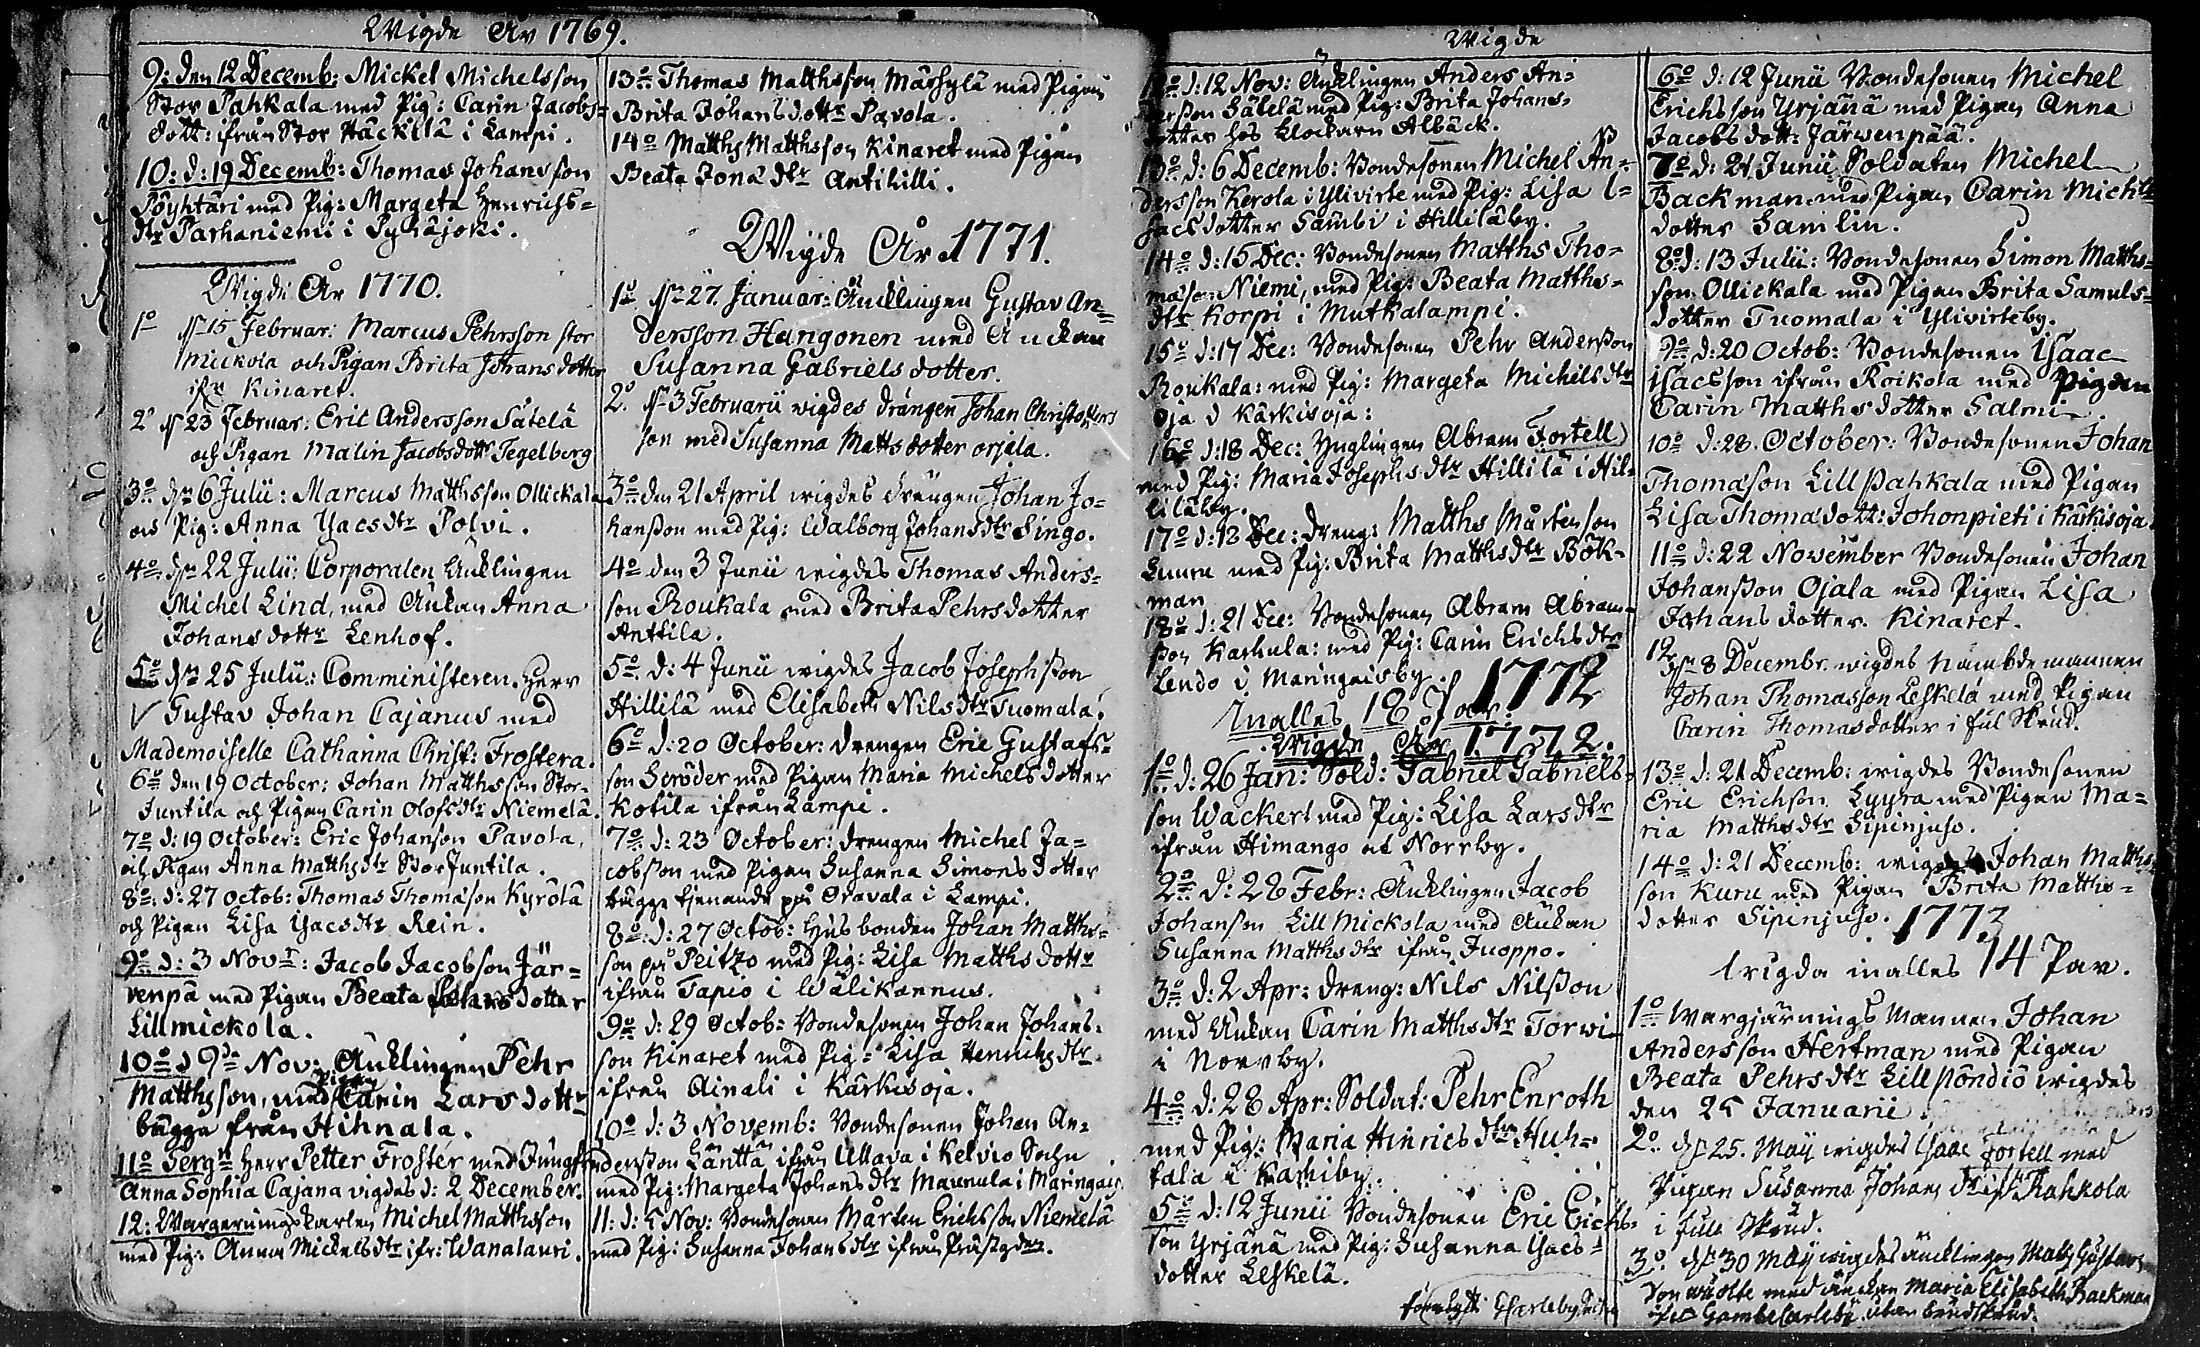 Wigde År 1769.
9: den 12 Decemb: Mickel Michelsson
Stor Pahkala med Pig: Carin Jacobs=
dott: ifrån Stor Häckilä i Lampi.
10: d: 19 Decemb: Thomas Johansson
Pöyhtäri med Pig: Margeta Henrichs=
dtr Parhaniemi i Pyhäjoki.
Wigde År 1770.
1o 15 Februar: Marcus Pehrsson stor
Mickola och Pigan Brita Johans dotter
ifr Kinaret.
2o 23 Februar: Eric Andersson Sätelä
och Pigan Malin Jacobsdottr Tegelberg
3o den 6 Julii: Marcus Matthsson Ollickala
och Pig: Anna Isacsdtr Polvi.
4o den 22 Julii: Corporalen Äncklingen
Michel Lind, med Änkan Anna
Johans dottr Lenhof.
5o den 25 Julii: Comministeren Herr
Gustav Johan Cajanus med
Mademoiselle Catharina Christ: Frostera.
6o den 19 October: Johan Matthsson Stor-
Juntila och Pigan Carin Olofsdtr Niemelä.
7o d: 19 October: Eric Johanson Pavola,
och Pigan Anna Matthsdtr StorJuntila.
8o d: 27 Octob: Thomas Thomason Kyrölä
och Pigan Lisa Isacsdtr Rein.
9o d: 3 Novr: Jacob Jacobson Jär=
venpä med Pigan Beata dotter
Lillmickola.
10o d 9de Nov: Äncklingen Pehr
Matthsson, med Pigan Carin Lars dottr
bägge från Hihnala.
11o Serg: Herr Petter Froster med Jungf
Anna Sophia Cajana vigdes d: 2 December.
12: Wargerings karlen Michel Matthsson
med Pig: Anna Mickelsdtr ifr: Wanalauri.
13o Thomas Matthsson Märsylä med Pigan
Brita Johans dottr Pavola.
14o Matths Matthsson Kinaret med Pigan
Beata Jonæ dtr Antihilli.
Wigde År 1771.
1o 27 Januar: Äncklingen Gustav An=
dersson Hangonen med Änckan
Susanna Gabriels dotter.
2o 3 Februarii vigdes drängen Johan Christoffers
son med Susanna Matts dotter orjala.
3o den 21 April wigdes drängen Johan Jo=
hansson med Pig: Walborg Johansdtr Singo.
4o den 3 Junii wigdes Thomas Anders=
son Roukala med Brita Pehrsdotter
Anttila.
5o d: 4 Junii wigdes Jacob Josephsson
Hillilä med Elisabeth Nilsdtr Tuomala.
6o d: 20 October: drengen Eric Gustafs=
son Scröder med Pigan Maria Michels dotter
Kotila ifrån Lampi.
7o d: 23 October: drengen Michel Ja=
cobsson med Pigan Susanna Simons dotter
bägge tjenande på Oravala i Lampi.
8o d: 27 Octob: Husbonden Johan Matths=
son på Peitzo med Pig: Lisa Matths dottr
ifrån Tapio i Wälikannus.
9o d: 29 Octob: Bondesonen Johan Johans=
son Kinaret med Pig: Lisa Henrichs dtr
ifrån Ainali i Kärkisoja.
10o d: 3 Novemb: Bondesonen Johan An=
dersson Läntta ifrån Ullava i Kelvio Sochn
med Pig: Margeta Johans dtr Maunula i Maringais.
11: d: 5 Nov: Bondesonen Mårten Erichsson Niemelä
med Pig: Susanna Johans dtr ifrån Prästgden.
Wigde
12o d: 12 Nov: Äncklingen Anders An=
dersson Sätelä med Pig: Brita Johans=
dotter hos Klockaren Alback.
13o d: 6 Decemb: Bondesonen Michel An=
dersson Kerola i Ylivirte med Pig: Lisa I=
sacs dotter Sämbi i Hilliläby.
14o d: 15 Dec: Bondesonen Matths Tho=
mason Niemi, med Pig: Beata Matths=
dtr Korpi i Mutkalampi.
15o d: 17 Dec: Bondesonen Pehr Andersson
Roukala: med Pig: Margeta Michelsdtr
Oja i Kärkisoja:
16o d: 18 Dec: Ynglingen Abram Fortell
med Pig: Maria Josephs dtr Hillilä i Hil=
liläby.
17o d: 18 Dec: dreng: Matths Mårtenson
Kuuru med Pig: Brita Matthsdtr Bök=
man
18o d: 21 Dec: Bondesonen Abram Abram=
son Karhula: med Pig: Carin Erichsdtr
Lendo i Maringaisby.
1772
Inalles 18 Par.
Wigde År 1772.
1o d: 26 Jan: Sold: Gabriel Gabriels=
son Wackert med Pig: Lisa Larsdtr
ifrån Himango at Norrby.
2o d: 28 Febr: Äncklingen Jacob
Johansson LillMickola med Änkan
Susanna Matthsdtr ifrån Juoppo.
3o d: 2 Apr: dreng: Nils Nilsson
med Änkan Carin Matthsdtr Torwi
i Norrby.
4o d: 28 Apr: Soldat: Pehr Enroth
med Pig: Maria Hinrics dtr Huh=
tala i Karhiby.
5o d: 12 Junii Bondesonen Eric Erichs=
son Yrjänä med Pig: Susanna Isacs=
dotter Leskelä.
6o d: 12 Junii Bondesonen Michel
Erichsson Yrjänä med Pigan Anna
Jacobs dott: Järwenpää.
7o d: 21 Junii Soldaten Michel
Backman med Pigan Carin Michls
dotter Samlin.
8o d: 13 Julii: Bondesonen Simon Matths=
son Ollickala med Pigan Brita Samuls=
dotter Tuomala i Ylivirteby.
9o d: 20 Octob: Bondesonen Isaac
Isacsson ifrån Roikola med Pigan
Carin Matths dotter Salmi.
10o d: 28 October: Bondesonen Johan
Thomason Lill Pahkala med Pigan
Lisa Thomæ dott: Johonpieti i Kärkisoja.
11o d: 22 November Bondesonen Johan
Johansson Ojala med Pigan Lisa
Johans dotter Kinaret.
12 8 Decembr. wigdes Nämbdemannen
Johan Thomasson Leskelä med Pigan
Carin Thomasdotter i ful Skrud.
13o d: 21 Decemb: wigdes Bondesonen
Eric Erichson Lyyra med Pigan Ma=
ria Matthsdtr Sipinjuso.
14o d: 21 Decemb: wigdes Johan Matths
son Kuru med Pigan Brita Matths=
dotter Sipinjuso.
1773
wigda inalles 14 Par.
1o Wargjärnings Mannen Johan
Andersson Hertman med Pigan
Beata Pehrsdtr Lillpöndiö wigdes
den 25 Januarii
2o 25 Maij wigdes Isaac Fortell med
Pigan Susanna Johans dtr Rahkola
i full Skrud.
3o 30 Maij wigdes äncklingen Matts Gustavs
son med änckan Maria Elisabeth Backman
ifrå Gambelcarleby utan brudskrud.